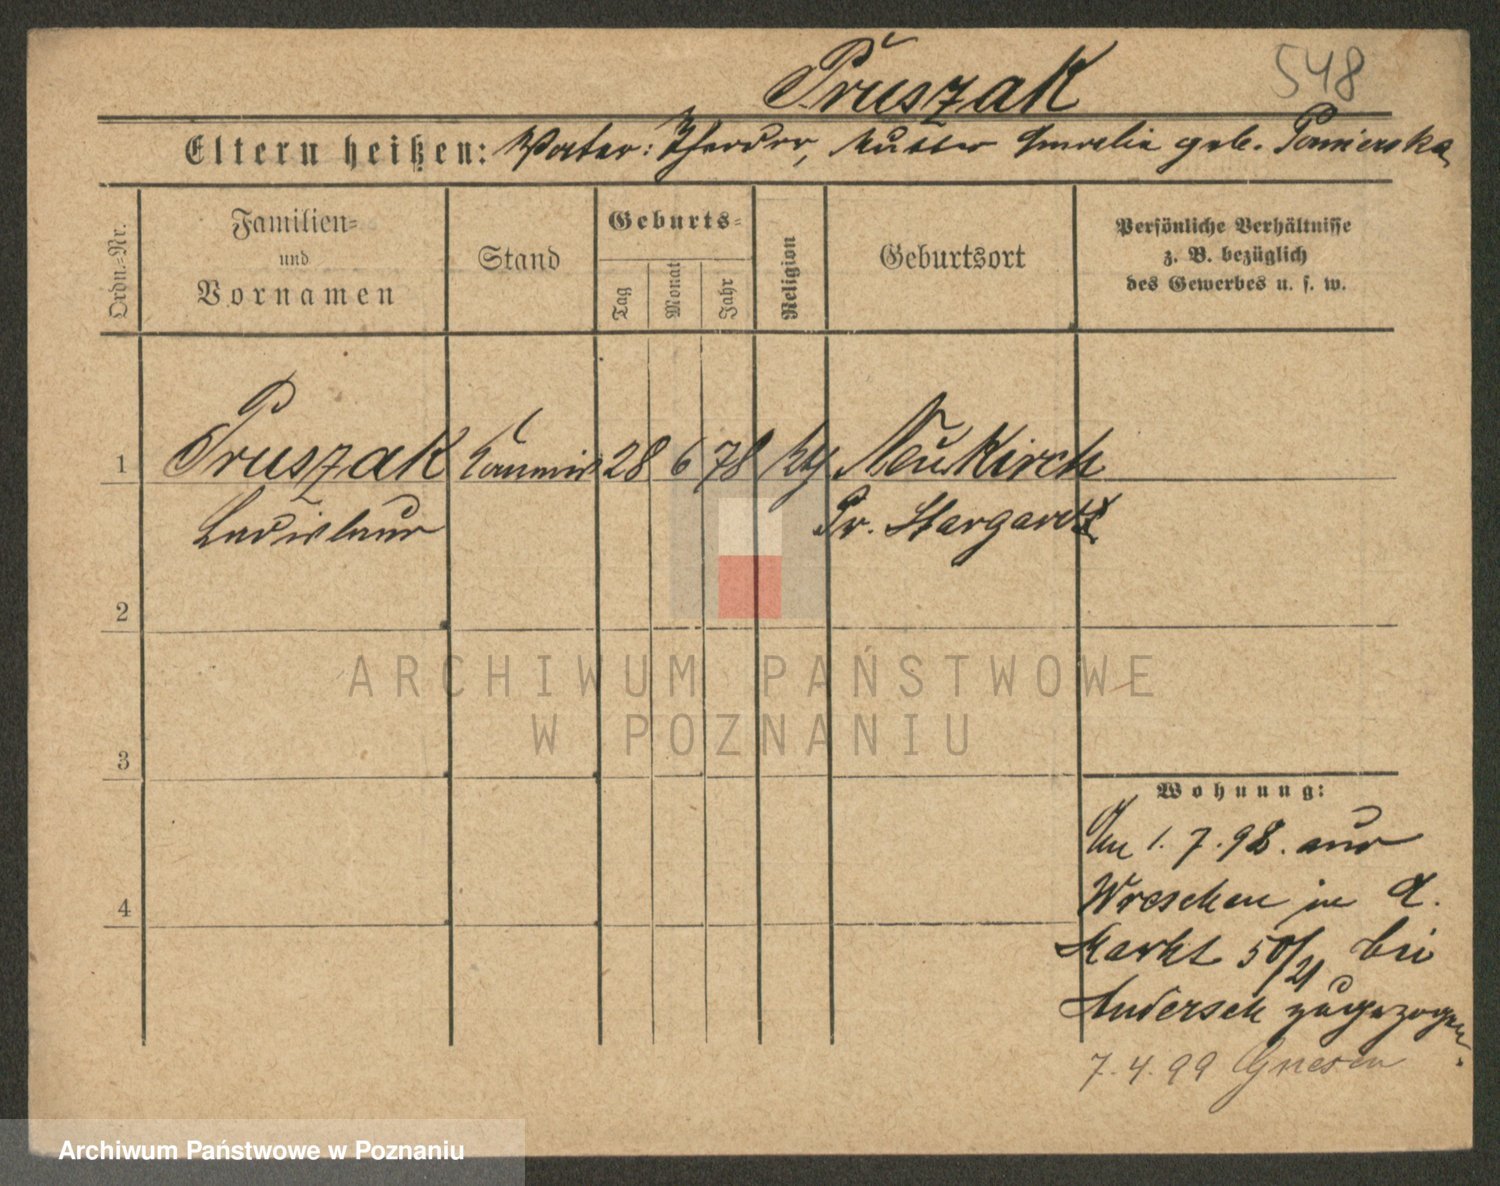 Pruszak 548
Eltern heißen: Vater: Theodor, Mutter Amalie geb. Pomierska
Ordn.-Nr.
Familien-
und
Vornamen
Stand
Geburts-
Tag
Monat
Jahr
Religion
Geburtsort
Persönliche Verhältnisse
z. B. bezüglich
des Gewerbes u. s. w.
1 Pruszak Kommis 28 6 78 kth Neukirch
Ladislaus Pr. Stargardt
2
3
4
Wohnung:
Am 1. 7. 98. aus
Wreschen in A.
Markt 50/21 bei
Andersch zugezogen.
7. 4. 99 Gnesen
ARCHIWUM PAŃSTWOWE
W POZNANIU
Archiwum Państwowe w Poznaniu